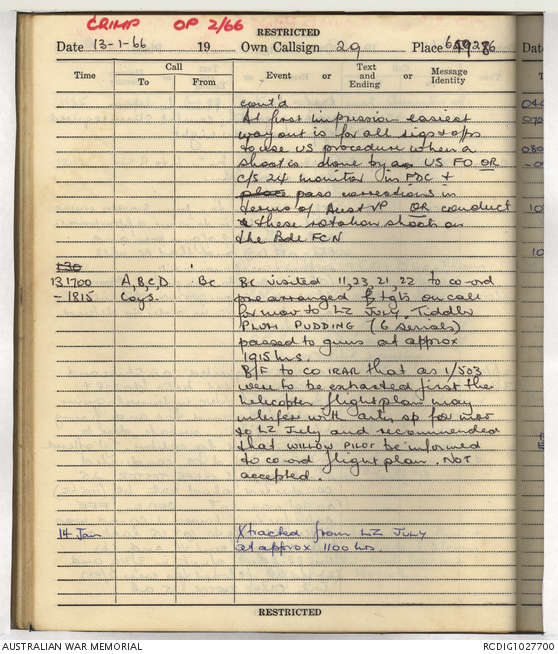 CRIMP OP 2/66
RESTRICTED
Date 13-1-66 19 Own Callsign 29 Place
Time Call To From Event or Text and Ending or Message Identity
cont'd
At first impression easiest
way out is for all sigs & ops
to use US procedure when a
shoot is done by a US FO OR
c/s 24 monitor in FDC &
place pass corrections in
terms of Aust VP OR conduct
& these rotation shoots on
the Bde FCN
130
131700 A,B,C,D Bc Bc visited 11,23,21,22 to co-ord
- 1815 Coys. pre arranged & tgts on call
for mov to LZ JULY. Tiddler
PLUM PUDDING (6 serials)
passed to guns at approx
1915 hrs.
B/F to CO 1RAR that as 1/503
were to be extracted first the
helicopter flight plan may
interfer with arty sp for mov
to LZ July and recommended
that WILLOW PILOT be informed
to co-ord flight plan. NOT
accepted.
14 Jan Xtracted from LZ JULY
at approx 1100 hrs
RESTRICTED
AUSTRALIAN WAR MEMORIAL RCDIG1027700